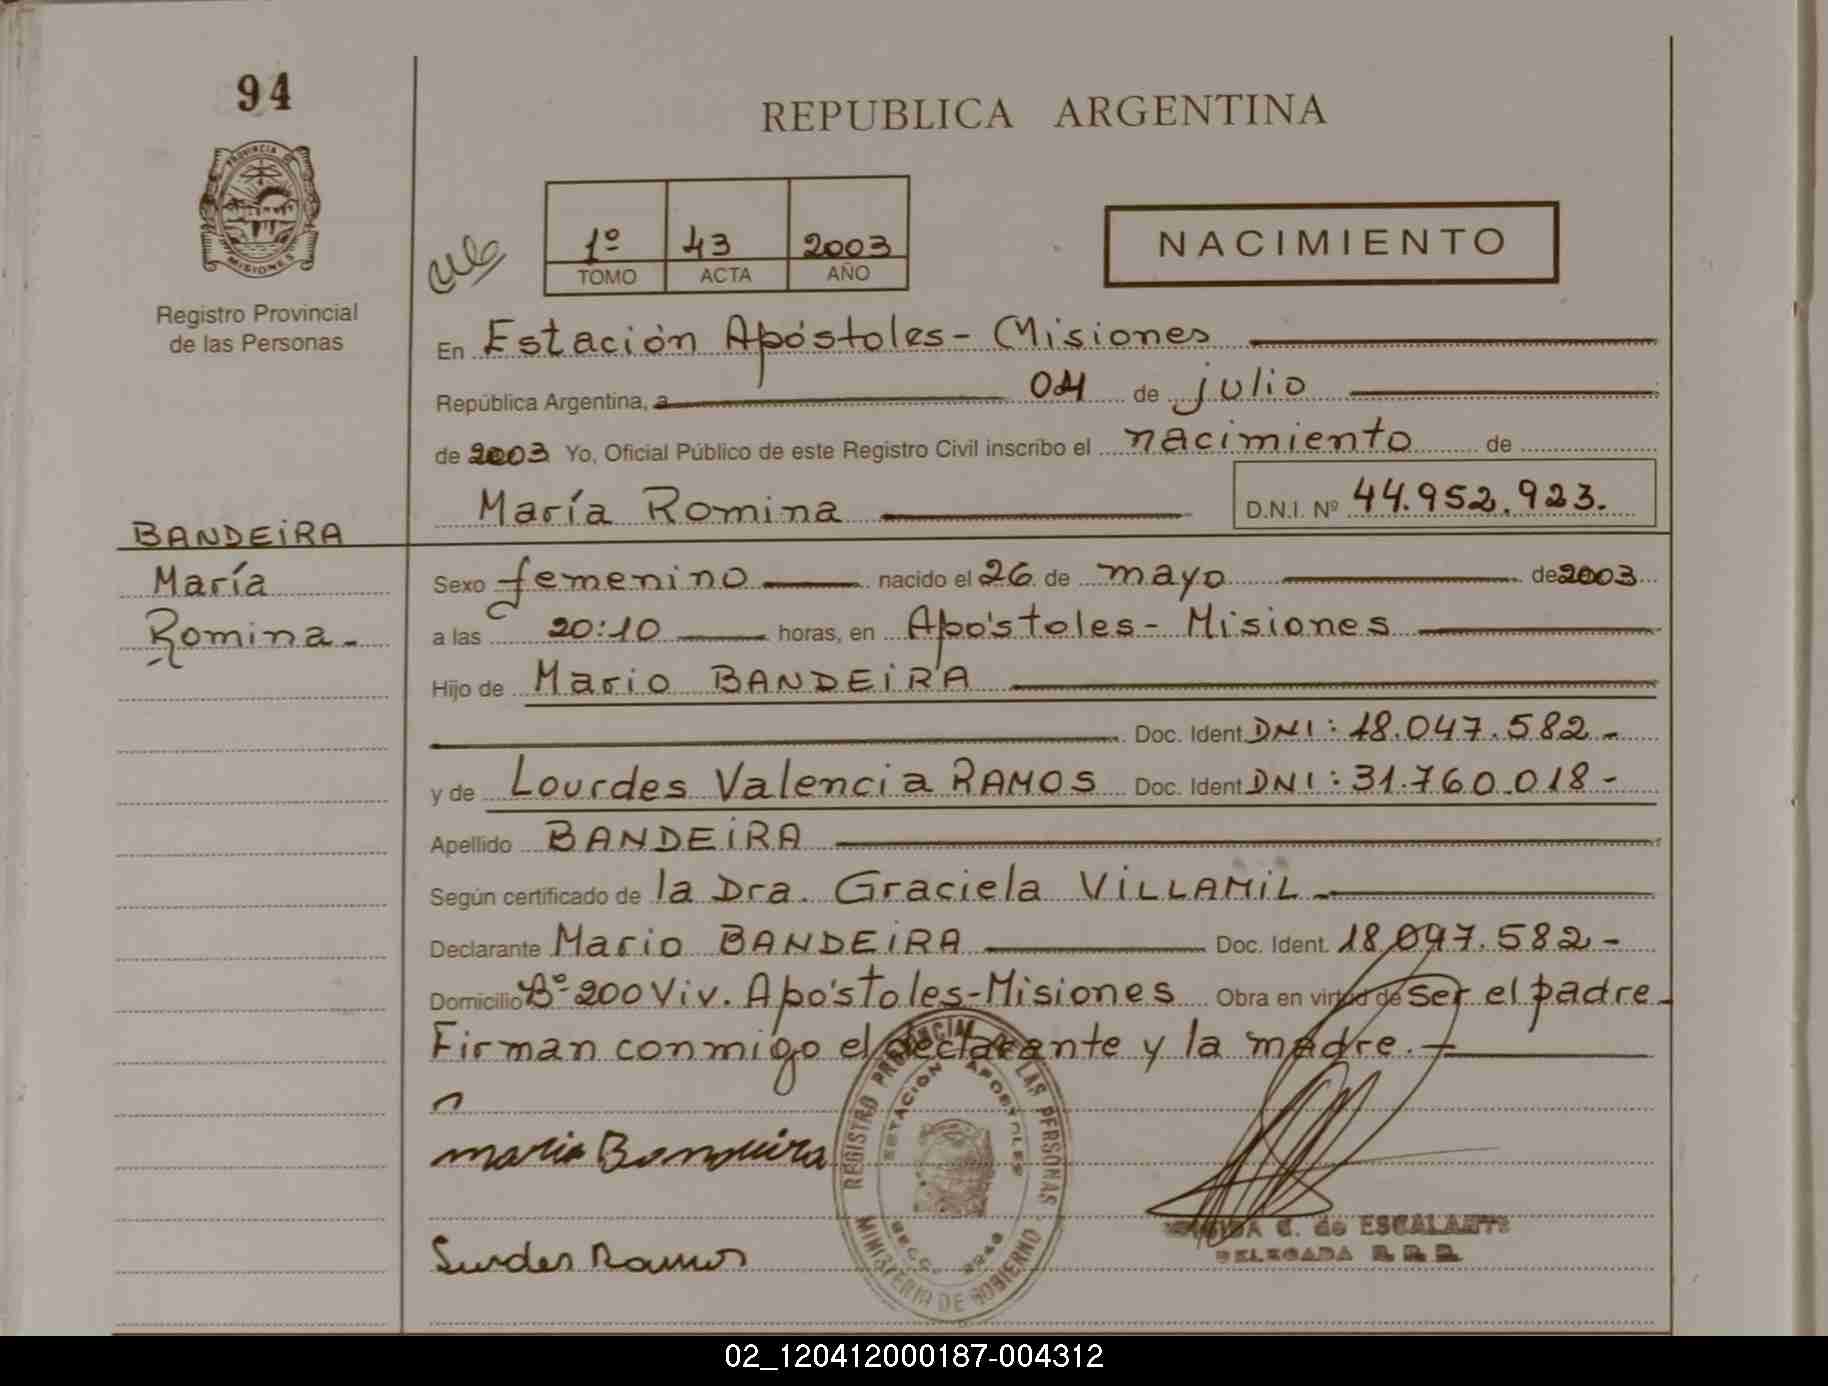 94
REPUBLICA ARGENTINA
PROVINCIA DE
MISIONES
Registro Provincial
de las Personas
1º 43 2003
TOMO ACTA AÑO
NACIMIENTO
En Estación Apóstoles - Misiones
República Argentina, a 04 de julio
de 2003 Yo, Oficial Público de este Registro Civil inscribo el nacimiento de
María Romina D.N.I. Nº 44.952.923.
BANDEiRA
María
Romina -
Sexo femenino nacido el 26 de mayo de 2003
a las 20:10 horas, en Apóstoles - Misiones
Hijo de Mario BANDEiRA
Doc. Ident. DNI: 18.047.582 -
y de Lourdes Valencia RAMOS Doc. Ident. DNI: 31.760.018 -
Apellido BANDEiRA
Según certificado de la Dra. Graciela ViLLAMiL -
Declarante Mario BANDEiRA Doc. Ident. 18.047.582 -
Domicilio Bº 200 Viv. Apóstoles - Misiones Obra en virtud de ser el padre -
Firman conmigo el declarante y la madre. -
REGISTRO PROVINCIAL DE LAS PERSONAS
ESTACION APOSTOLES
MINISTERIO DE GOBIERNO
mario Bandeira
Lurdes Ramos
C. de ESCALANTE
DELEGADA
02_120412000187-004312